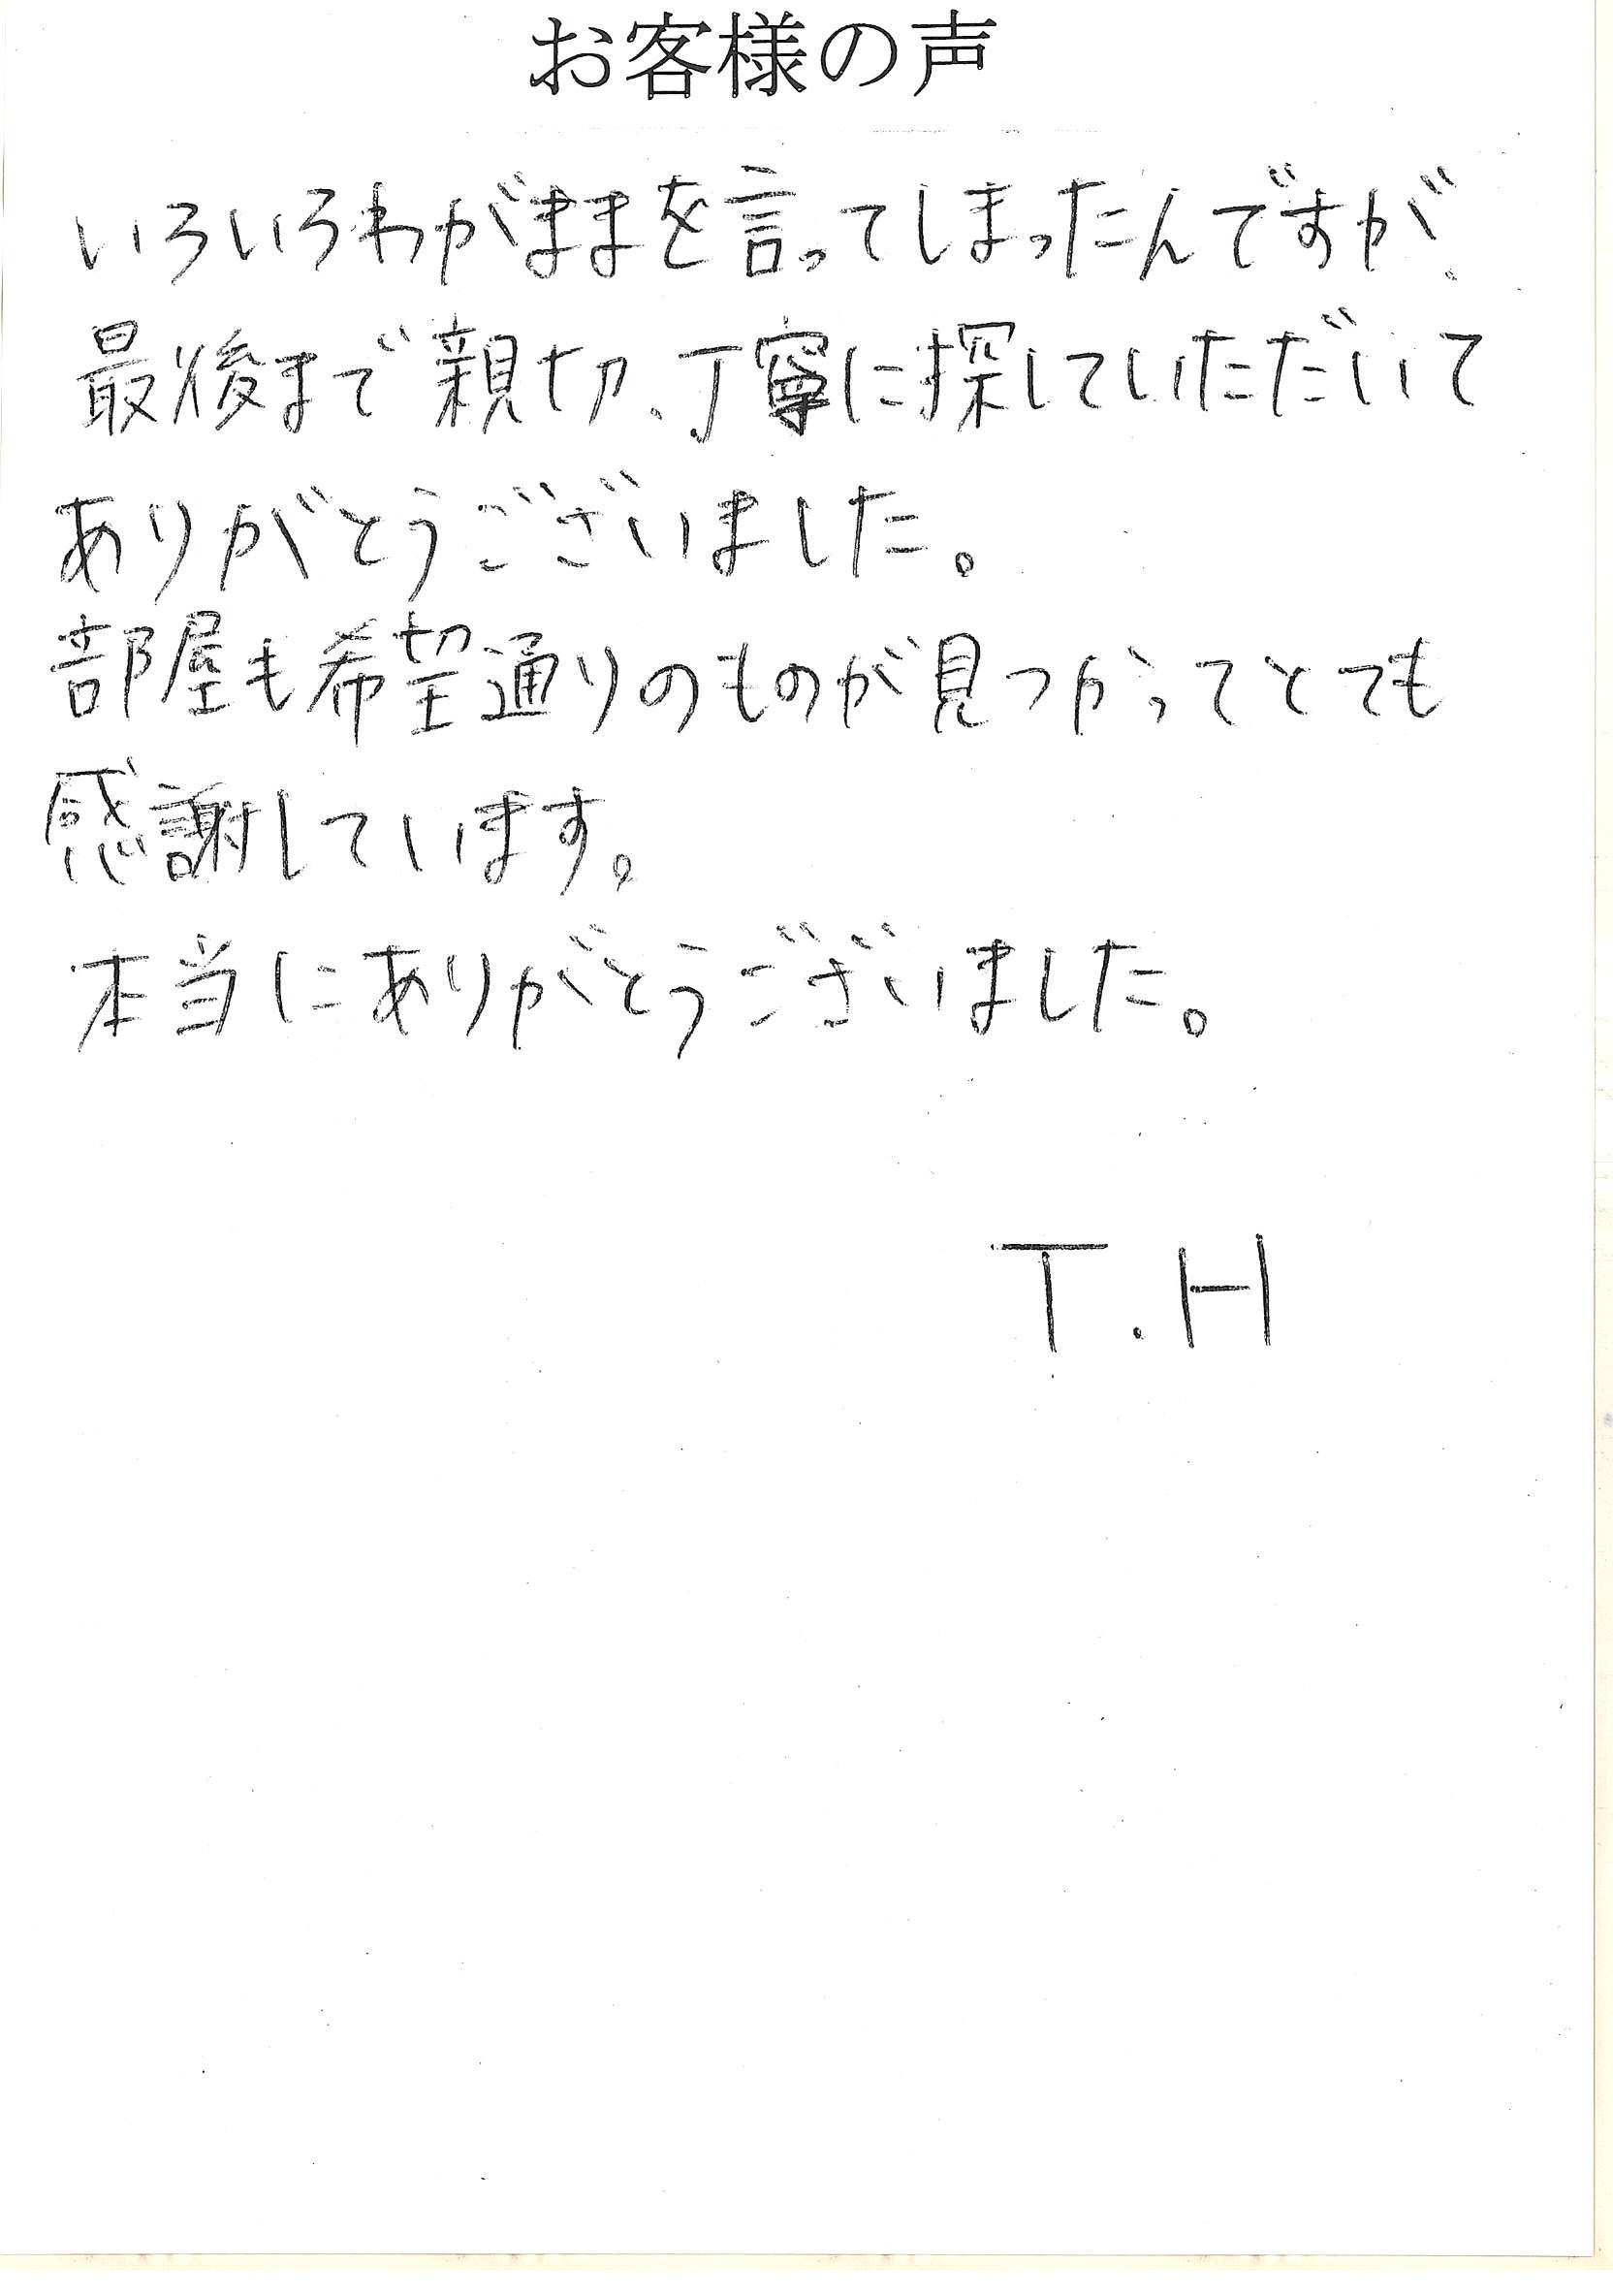 お客様の声
いろいろわがままを言ってしまったんですが、
最後まで親切、丁寧に探していただいて
ありがとうございました。
部屋も希望通りのものが見つかってとても
感謝しています。
本当にありがとうございました。
T.H